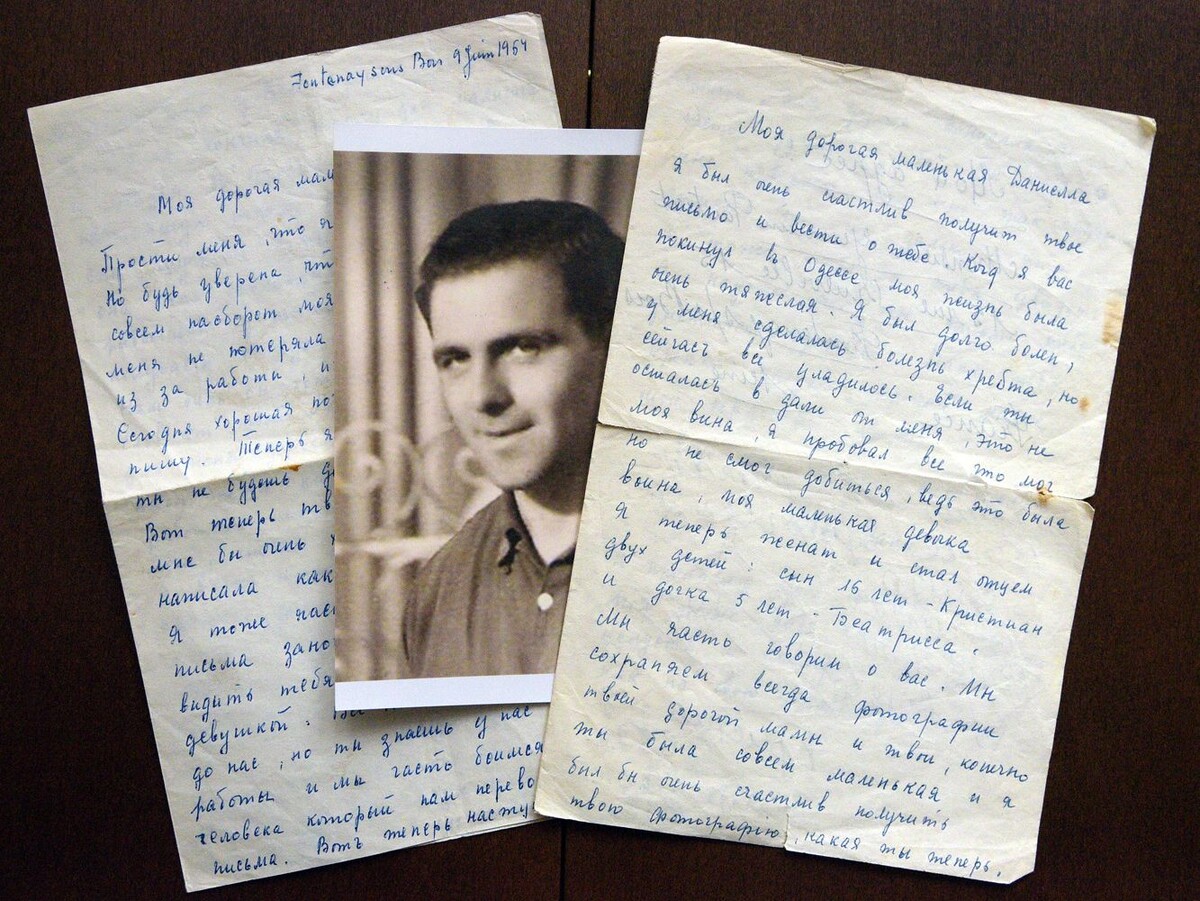 Fontenay sous Bois 9 Juin 1964
Моя дорогая мал
Прости меня, что я
Но будь уверена, чт
совсем наоборот моя
меня не потеряла
из за работи, и
Сегодня хорошая по
пишу. Теперь я
ти не будешь д
Вот теперь тв
мне би очень х
написала как
Я тоже час
письма зано
видить тебя
девушкой. Вс
до нас, но ти знаешь у нас
работы и мы часто боимся
человека который нам перево
письма. Вотъ теперь насту
Моя дорогая маленькая Даниелла
Я был очень счастлив получит твое
письмо и вести о тебе. Когд я вас
покинул въ Одессе моя жизнь была
очень тяжеслая. Я был долго болен,
у меня сделалась болезнь хребта, но
сейчасъ всё уладилось. Если ти
осталась в дали от меня, это не
моя вина, я пробовал все это мог
но не смог добиться, ведь это была
война, моя маленькая девычка
Я теперь женат и стал отцем
двух детей: сын 16 лет - Кристиан
и дочка 5 лет - Беатрисса.
Мы часто говорим о вас. Мы
сохраняем всегда фотографии
твоей дорогой мамы и твои, конечно
ты была совсем маленькая и я
был бы очень счастлив получить
твою фотографію, какая ты теперь.